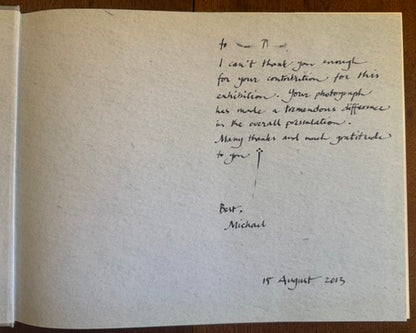 to
I can't thank you enough
for your contribution for this
exhibition. Your photograph
has made a tremendous difference
in the overall presentation.
Many thanks and much gratitude
to you
Best,
Michael
15 August 2013